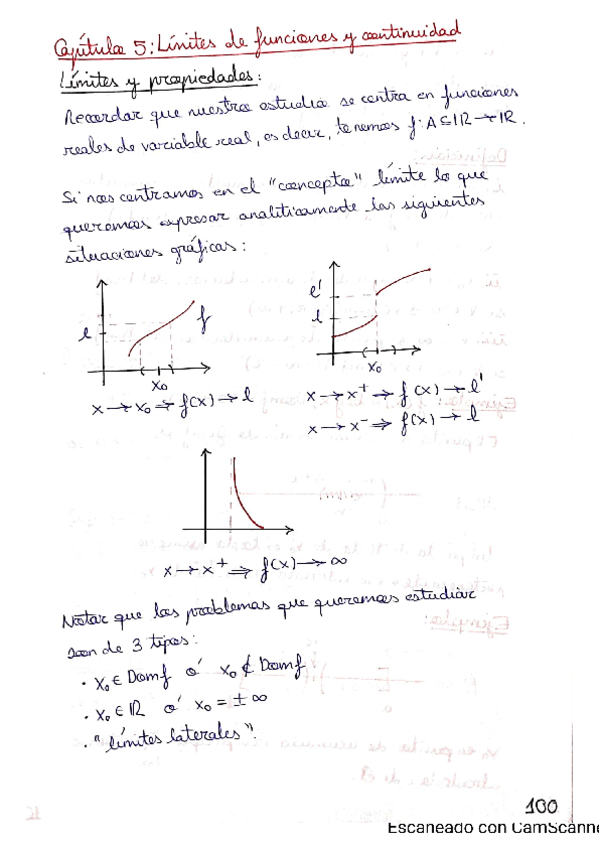 Capítulo 5: Límites de funciones y continuidad
Límites y propiedades:
Recordar que nuestro estudio se centra en funciones
reales de variable real, es decir, tenemos f: A ⊆ IR → IR.
Si nos centramos en el "concepto" límite lo que
queremos expresar analíticamente las siguientes
situaciones gráficas:
l
f
x₀
x → x₀ ⇒ f(x) → l
l'
l
x₀
x → x⁺ ⇒ f(x) → l'
x → x⁻ ⇒ f(x) → l
x → x⁺ ⇒ f(x) → ∞
Notar que los problemas que queremos estudiar
son de 3 tipos:
· x₀ ∈ Domf ó x₀ ∉ Domf
· x₀ ∈ IR ó x₀ = ± ∞
· "límites laterales".
100
Escaneado con CamScanne